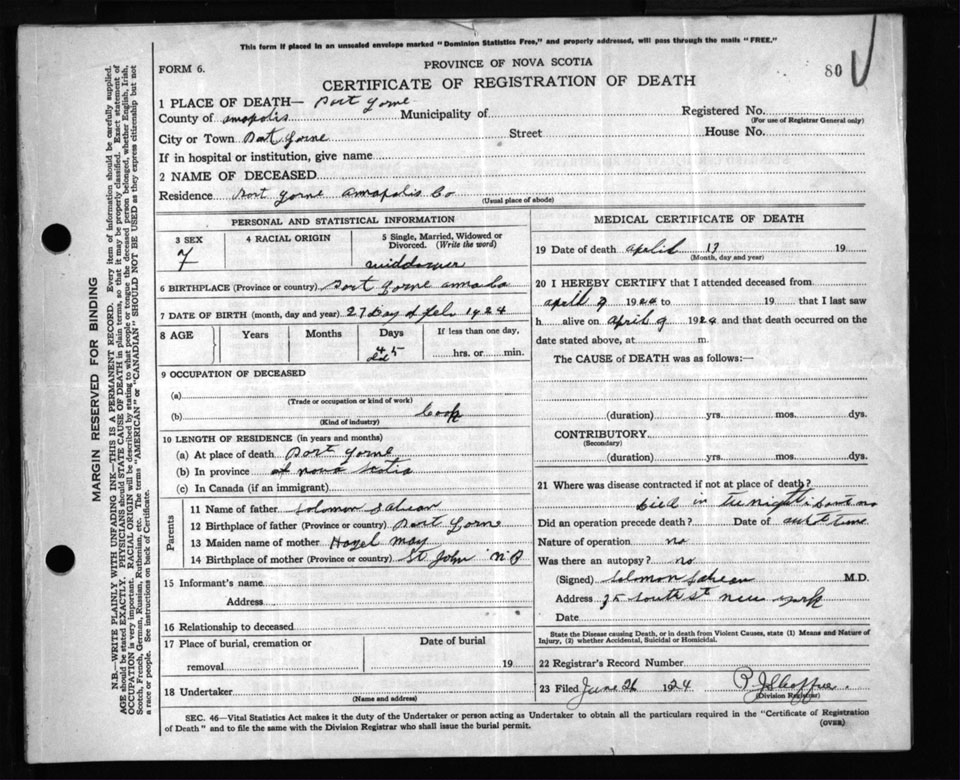 This form if placed in an unsealed envelope marked "Dominion Statistics Free," and properly addressed, will pass through the mails "FREE."
FORM 6.
PROVINCE OF NOVA SCOTIA
80
CERTIFICATE OF REGISTRATION OF DEATH
1 PLACE OF DEATH— Port Lorne
County of Annapolis Municipality of Registered No.
(For use of Registrar General only)
City or Town Port Lorne Street House No.
If in hospital or institution, give name
2 NAME OF DECEASED
Residence Port Lorne Annapolis Co
(Usual place of abode)
PERSONAL AND STATISTICAL INFORMATION
3 SEX
4 RACIAL ORIGIN
5 Single, Married, Widowed or Divorced. (Write the word)
6 BIRTHPLACE (Province or country) Port Lorne
7 DATE OF BIRTH (month, day and year) 27 Day of Feb 1924
8 AGE Years Months Days If less than one day,
45
hrs. or min.
9 OCCUPATION OF DECEASED
(a)
(Trade or occupation or kind of work)
(b) Cook
(Kind of industry)
10 LENGTH OF RESIDENCE (in years and months)
(a) At place of death Port Lorne
(b) In province of Nova Scotia
(c) In Canada (if an immigrant)
Parents
11 Name of father Solomon
12 Birthplace of father (Province or country) Port Lorne
13 Maiden name of mother Hazel May
14 Birthplace of mother (Province or country) St John N B
15 Informant's name
Address
16 Relationship to deceased
17 Place of burial, cremation or removal
Date of burial
19
18 Undertaker
(Name and address)
MEDICAL CERTIFICATE OF DEATH
19 Date of death April 13 19
(Month, day and year)
20 I HEREBY CERTIFY that I attended deceased from
April 9 1924 to 19 that I last saw
h alive on April 9 1924 and that death occurred on the
date stated above, at m.
The CAUSE of DEATH was as follows:—
(duration) yrs. mos. dys.
CONTRIBUTORY
(Secondary)
(duration) yrs. mos. dys.
21 Where was disease contracted if not at place of death?
Died in the night
Did an operation precede death? Date of at the time
Nature of operation no
Was there an autopsy? no
(Signed) Solomon M.D.
Address 35 South St New York
Date
State the Disease causing Death, or in death from Violent Causes, state (1) Means and Nature of Injury, (2) whether Accidental, Suicidal or Homicidal.
22 Registrar's Record Number
23 Filed June 26 1924
(Division Registrar)
SEC. 46—Vital Statistics Act makes it the duty of the Undertaker or person acting as Undertaker to obtain all the particulars required in the "Certificate of Registration of Death" and to file the same with the Division Registrar who shall issue the burial permit.
(OVER)
MARGIN RESERVED FOR BINDING
N.B.—WRITE PLAINLY WITH UNFADING INK—THIS IS A PERMANENT RECORD. Every item of information should be carefully supplied.
AGE should be stated EXACTLY. PHYSICIANS should STATE CAUSE OF DEATH in plain terms, so that it may be properly classified. Exact statement of
OCCUPATION is very important. RACIAL ORIGIN will be described by stating to what people or tongue the deceased person belonged, whether English, Irish,
Scotch, French, German, Russian, Ruthenian, etc. The terms "AMERICAN" or "CANADIAN" SHOULD NOT BE USED as they express citizenship but not
a race or people. See instructions on back of Certificate.